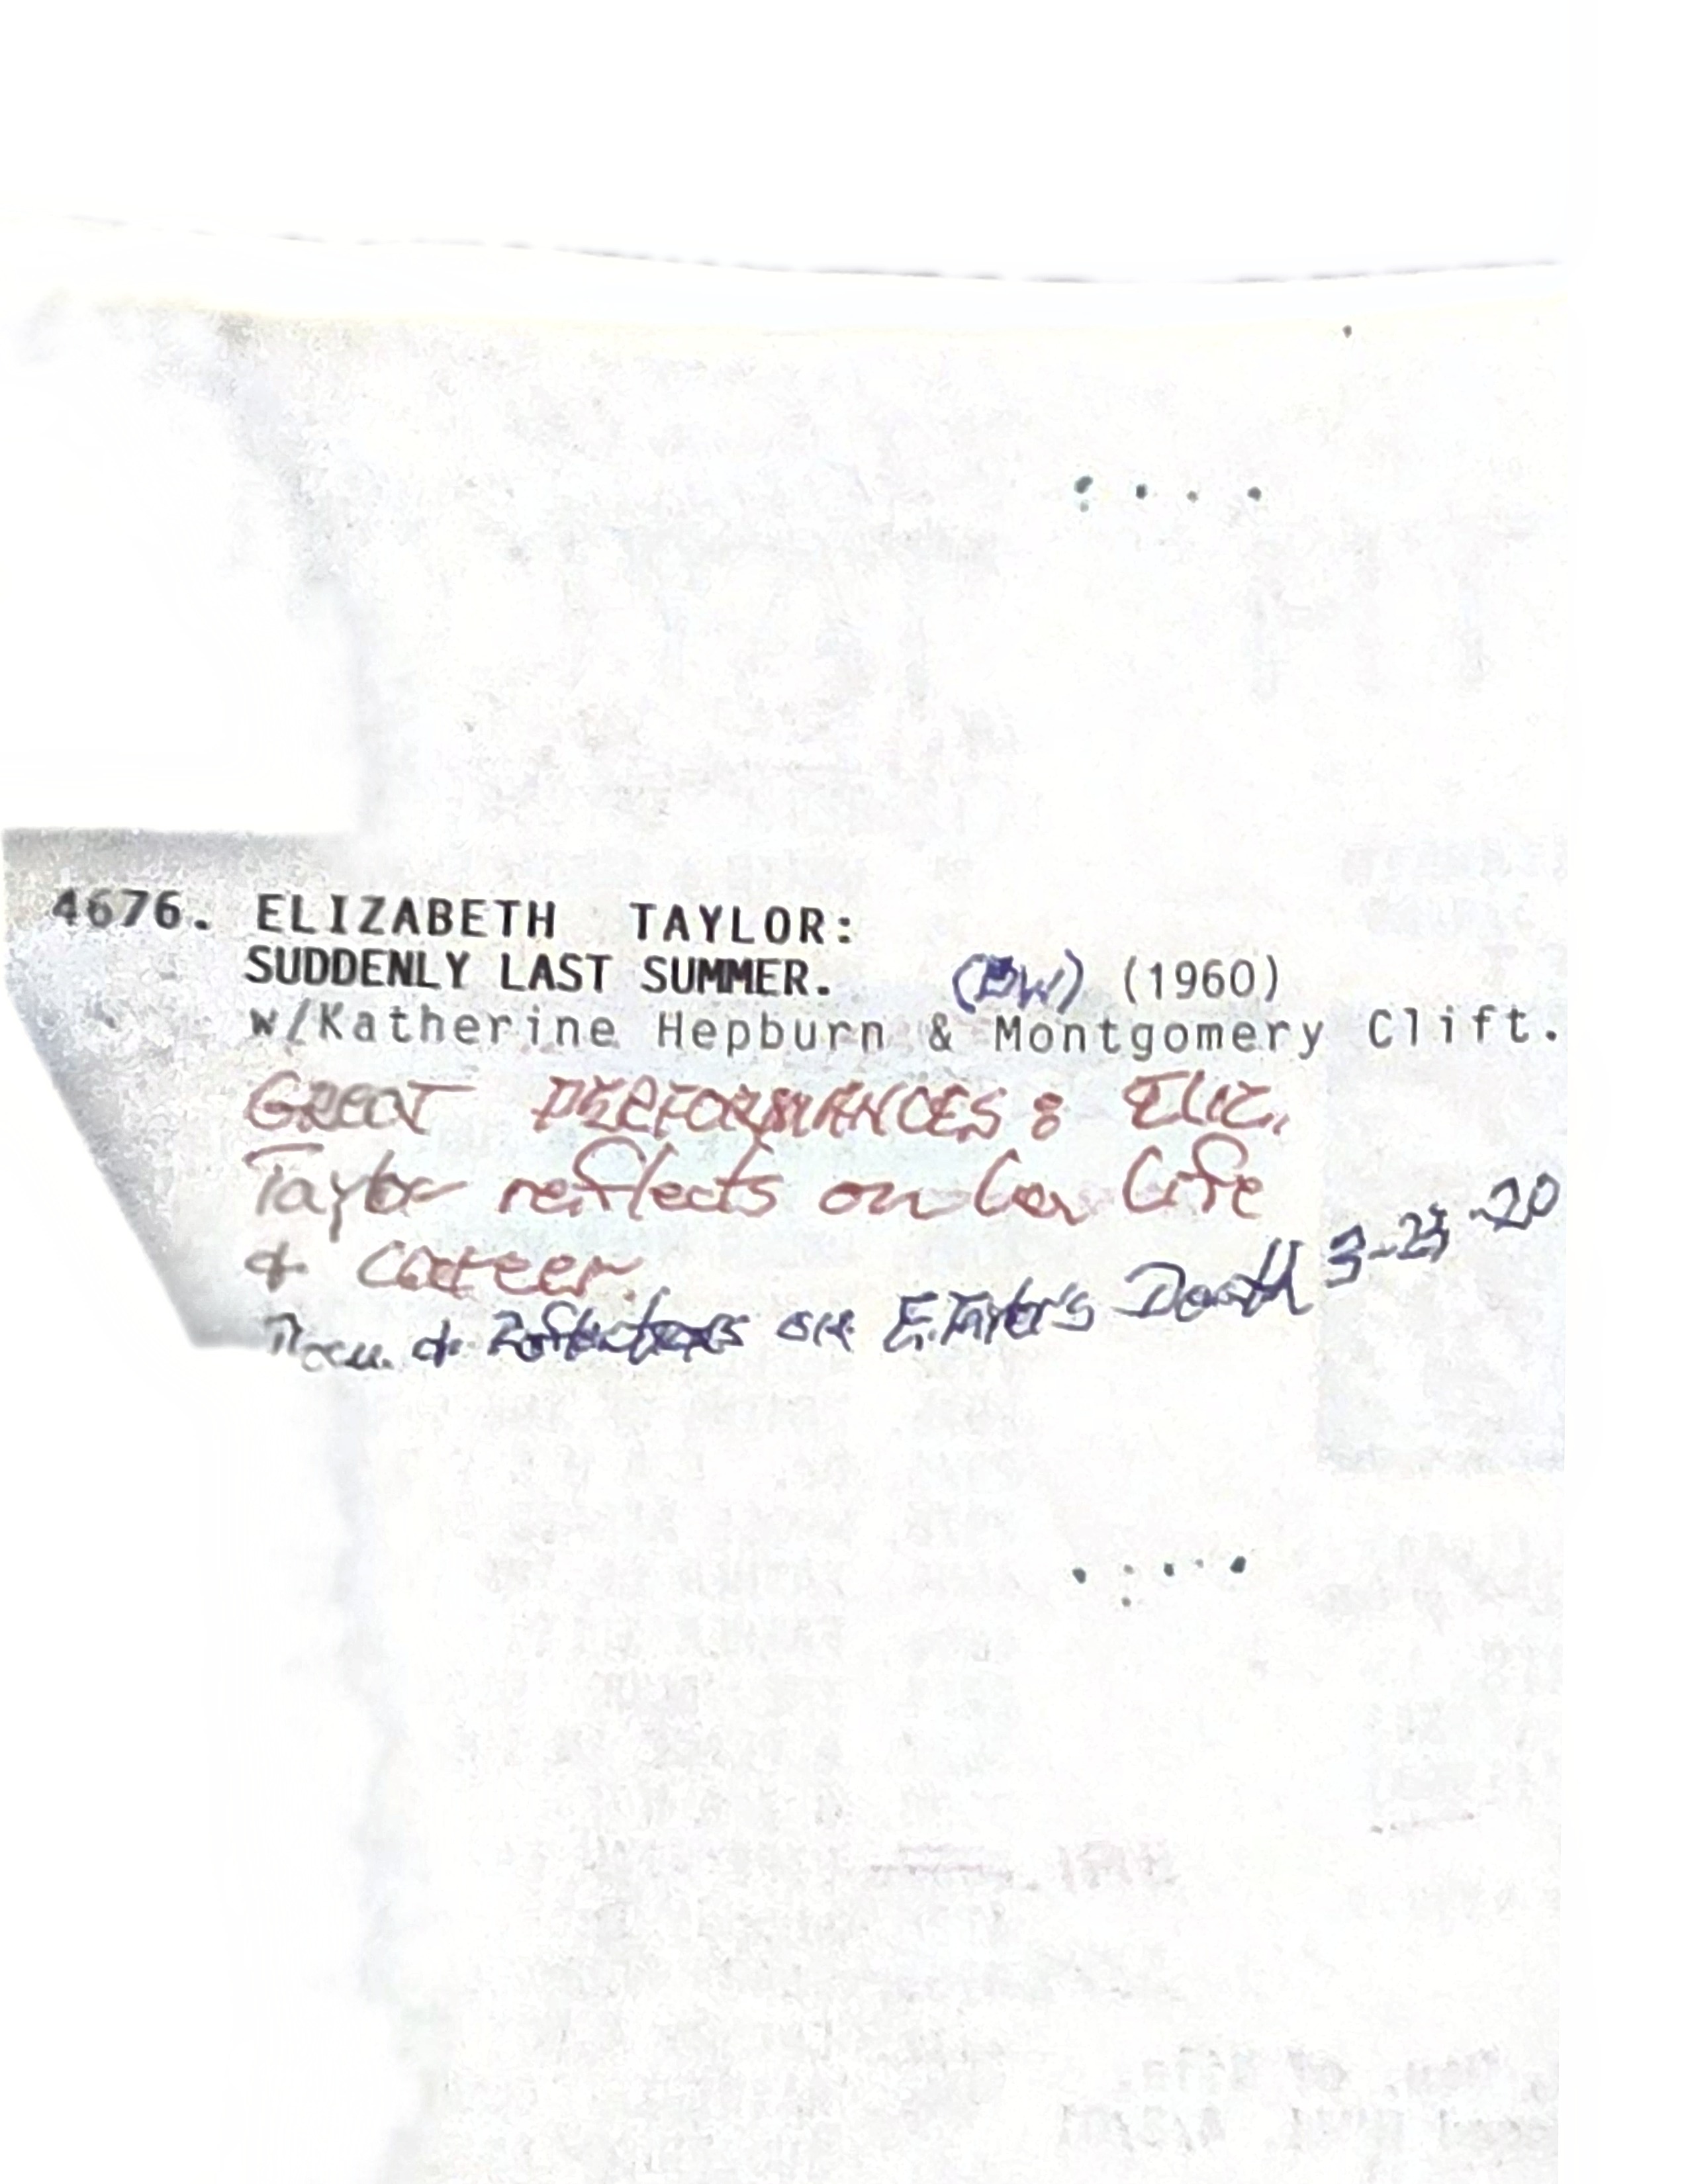 4676. ELIZABETH TAYLOR:
SUDDENLY LAST SUMMER. (BW) (1960)
w/Katherine Hepburn & Montgomery Clift.
GREAT PERFORMANCES: ELIZ.
Taylor reflects on her life
& career.
Docu. & Reflections on E. Taylor's Death 3-23-20